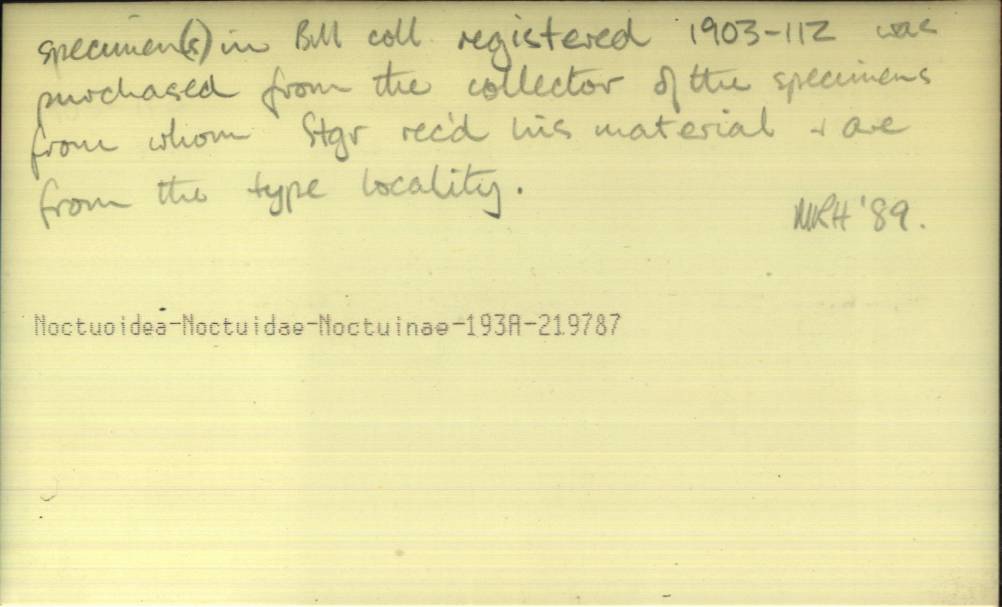 specimen(s) in BM coll registered 1903-112 was
purchased from the collector of the specimens
from whom Stgr rec'd his material + are
from the type locality.
MRH '89.
Noctuoidea-Noctuidae-Noctuinae-193A-219787